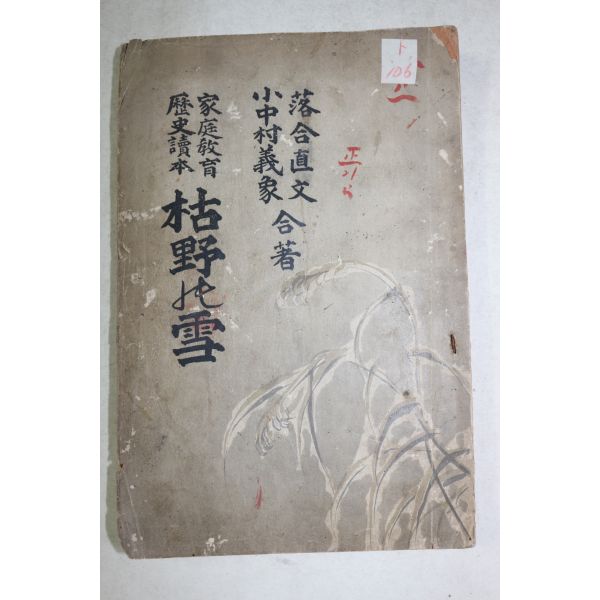 ト
106
落合直文
小中村義象
合著
家庭教育
歷史讀本
枯野の雪